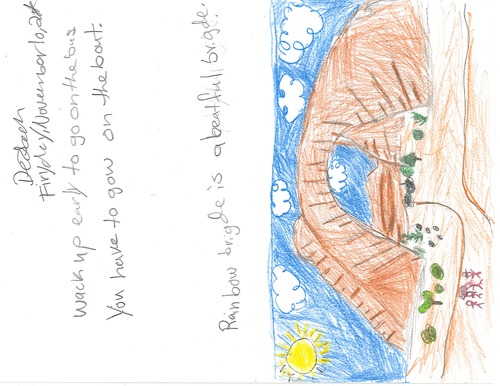 Dezbah
Firyday, November 10, 20
Wack up early to go on the bus
You have to gow on the bout.
Rainbow brigde is a beatfull brigde.